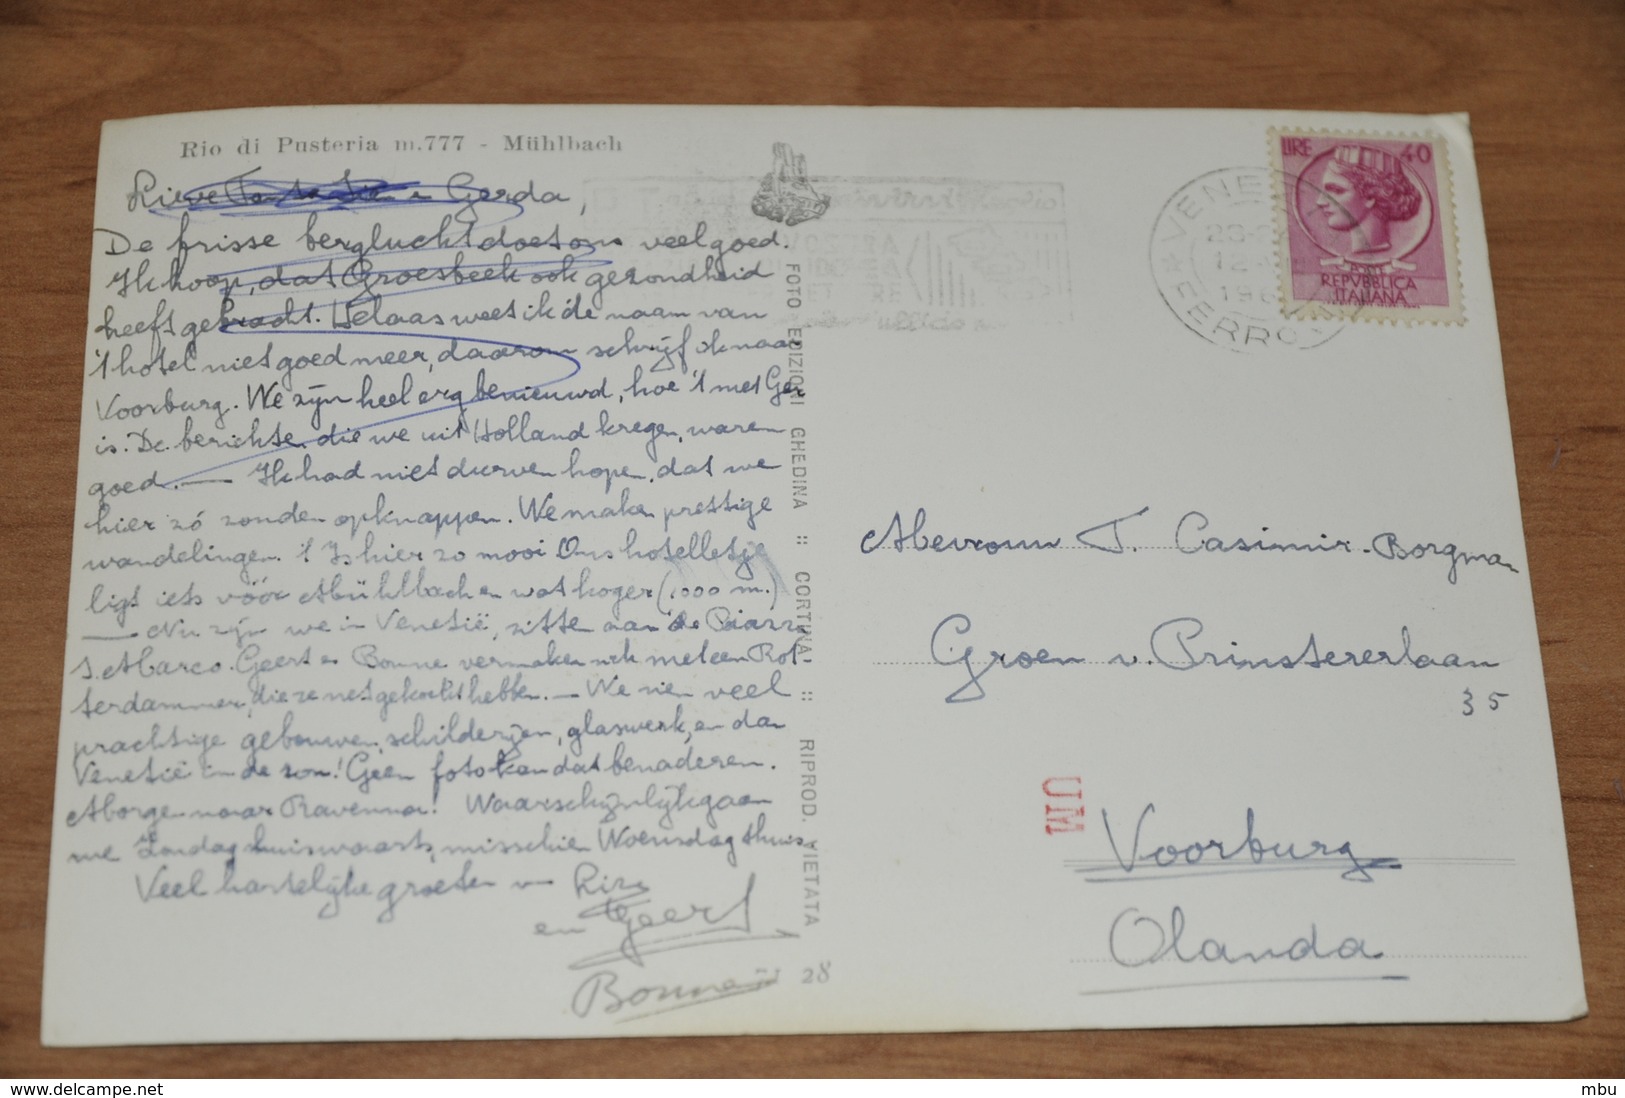 Rio di Pusteria m.777 - Mühlbach
Lieve Gerda,
De frisse berglucht doet ons veel goed.
Ik hoop, dat Groesbeek ook gezondheid
heeft gebracht. Helaas weet ik de naam van
't hotel niet goed meer, daarom schrijf ik naar
Voorburg. We zijn heel erg benieuwd, hoe 't met Ger
is. De berichten die we uit Holland kregen, waren
goed. — Ik had niet durven hopen, dat we
hier zó zonden opknappen. We maken prettige
wandelingen. 't Is hier zo mooi. Ons hotelletje
ligt iets vóór Mühlbach en wat hoger (1000 m.)
— Nu zijn we in Venetië, zitten aan de Piazza
S. Marco. Geert en Bonne vermaken zich met een Rot-
terdammer, die ze net gekocht hebben. — We zien veel
prachtige gebouwen, schilderijen, glaswerk, en dan
Venetië in de zon! Geen foto kan dat benaderen.
Morgen naar Ravenna! Waarschijnlijk gaan
we Zondag huiswaarts, misschien Woensdag thuis.
Veel hartelijke groeten van
en Geert
Bonne
28
FOTO EDIZIONI GHEDINA :: CORTINA :: RIPROD. VIETATA
VENEZIA
FERROVIA
LIRE 40
REPVBBLICA
ITALIANA
Mevrouw T. Casimir-Borgman
Groen v. Prinstererlaan
35
UM
Voorburg
Olanda
www.delcampe.net
mbu